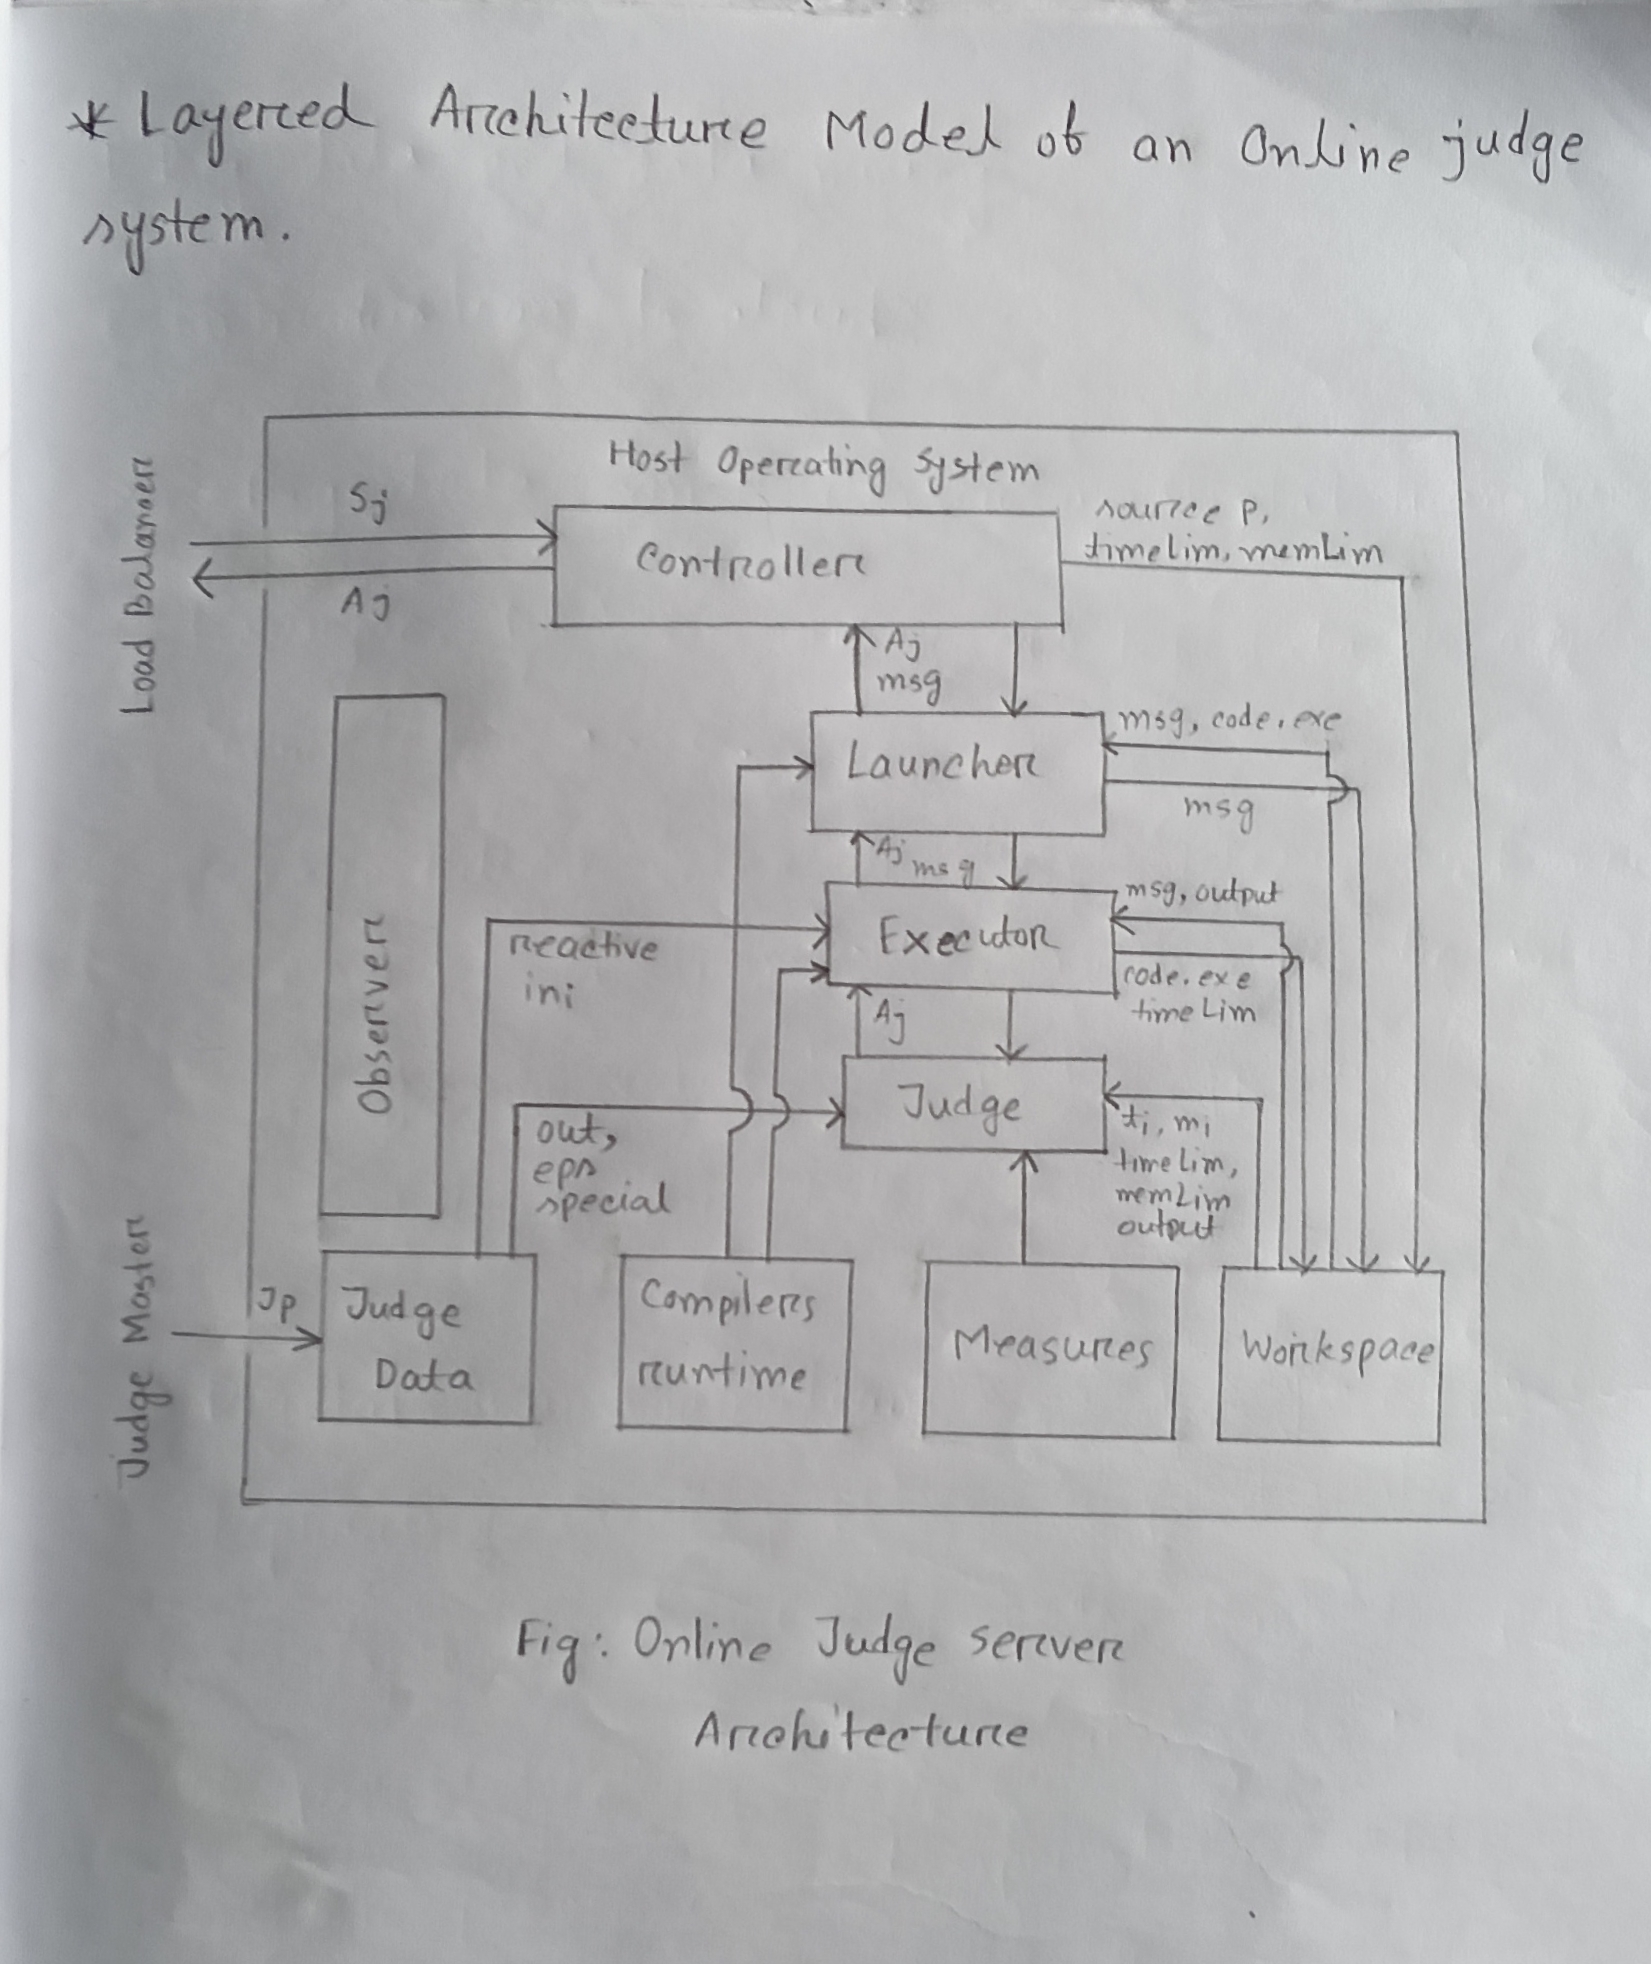 * Layered Architecture Model of an Online judge
system.
Host Operating System
Load Balancer
Sj
Aj
Controller
source p,
timeLim, memLim
Aj
msg
Launcher
msg, code.exe
msg
Aj msg
Observer
reactive
ini
Executor
msg, output
code.exe
timeLim
Aj
Judge
out,
eps
special
ti, mi
timeLim,
memLim
output
Judge Master
Jp
Judge
Data
Compilers
runtime
Measures
Workspace
Fig: Online Judge server
Architecture